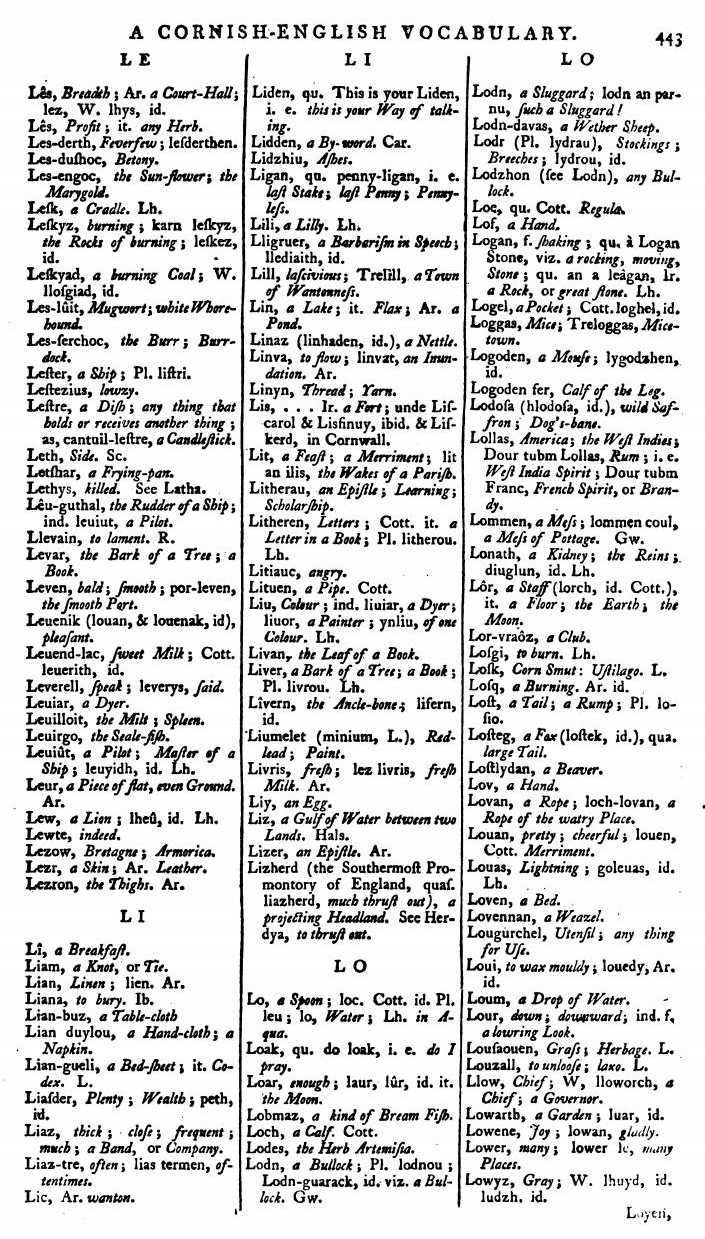 A CORNISH-ENGLISH VOCABULARY.
443
LE
Lês, Breadth; Ar. a Court-Hall;
lez, W. lhys, id.
Lês, Profit; it. any Herb.
Les-derth, Feverfew; leſderthen.
Les-duſhoc, Betony.
Les-engoc, the Sun-flower; the
Marygold.
Leſk, a Cradle. Lh.
Leſkyz, burning; karn leſkyz,
the Rocks of burning; leſkez,
id.
Leſkyad, a burning Coal; W.
lloſgiad, id.
Les-lûit, Mugwort; white Whore-
hound.
Les-ſerchoc, the Burr; Burr-
dock.
Leſter, a Ship; Pl. liſtri.
Leſtezius, lowzy.
Leſtre, a Diſh; any thing that
holds or receives another thing;
as, cantuil-leſtre, a Candleſtick.
Leth, Side. Sc.
Letſhar, a Frying-pan.
Lethys, killed. See Latha.
Lêu-guthal, the Rudder of a Ship;
ind. leuiut, a Pilot.
Llevain, to lament. R.
Levar, the Bark of a Tree; a
Book.
Leven, bald; ſmooth; por-leven,
the ſmooth Port.
Leuenik (louan, & louenak, id),
pleaſant.
Leuend-lac, ſweet Milk; Cott.
leuerith, id.
Leverell, ſpeak; leverys, ſaid.
Leuiar, a Dyer.
Leuilloit, the Milt; Spleen.
Leuirgo, the Seale-fiſh.
Leuiût, a Pilot; Maſter of a
Ship; leuyidh, id. Lh.
Leur, a Piece of flat, even Ground.
Ar.
Lew, a Lion; lheû, id. Lh.
Lewte, indeed.
Lezow, Bretagne; Armorica.
Lezr, a Skin; Ar. Leather.
Lezron, the Thighs. Ar.
LI
Lî, a Breakfaſt.
Liam, a Knot, or Tie.
Lian, Linen; lien. Ar.
Liana, to bury. Ib.
Lian-buz, a Table-cloth
Lian duylou, a Hand-cloth; a
Napkin.
Lian-gueli, a Bed-ſheet; it. Co-
dex. L.
Liaſder, Plenty; Wealth; peth,
id.
Liaz, thick; cloſe; frequent;
much; a Band, or Company.
Liaz-tre, often; lias termen, of-
tentimes.
Lic, Ar. wanton.
LI
Liden, qu. This is your Liden,
i. e. this is your Way of talk-
ing.
Lidden, a By-word. Car.
Lidzhiu, Aſhes.
Ligan, qu. penny-ligan, i. e.
laſt Stake; laſt Penny; Penny-
leſs.
Lili, a Lilly. Lh.
Lligruer, a Barbariſm in Speech;
llediaith, id.
Lill, laſcivious; Trelill, a Town
of Wantonneſs.
Lin, a Lake; it. Flax; Ar. a
Pond.
Linaz (linhaden, id.), a Nettle.
Linva, to flow; linvat, an Inun-
dation. Ar.
Linyn, Thread; Yarn.
Lis, . . . Ir. a Fort; unde Liſ-
carol & Lisfinuy, ibid. & Liſ-
kerd, in Cornwall.
Lit, a Feaſt; a Merriment; lit
an ilis, the Wakes of a Pariſh.
Litherau, an Epiſtle; Learning;
Scholarſhip.
Litheren, Letters; Cott. it. a
Letter in a Book; Pl. litherou.
Lh.
Litiauc, angry.
Lituen, a Pipe. Cott.
Liu, Colour; ind. liuiar, a Dyer;
liuor, a Painter; ynliu, of one
Colour. Lh.
Livan, the Leaf of a Book.
Liver, a Bark of a Tree; a Book;
Pl. livrou. Lh.
Lîvern, the Ancle-bone; lifern,
id.
Liumelet (minium, L.), Red-
lead; Paint.
Livris, freſh; lez livris, freſh
Milk. Ar.
Liy, an Egg.
Liz, a Gulf of Water between two
Lands. Hals.
Lizer, an Epiſtle. Ar.
Lizherd (the Southermoſt Pro-
montory of England, quaſ.
liazherd, much thruſt out), a
projecting Headland. See Her-
dya, to thruſt out.
LO
Lo, a Spoon; loc. Cott. id. Pl.
leu; lo, Water; Lh. in A-
qua.
Loak, qu. do loak, i. e. do I
pray.
Loar, enough; laur, lûr, id. it.
the Moon.
Lobmaz, a kind of Bream Fiſh.
Loch, a Calf. Cott.
Lodes, the Herb Artemiſia.
Lodn, a Bullock; Pl. lodnou;
Lodn-guarack, id. viz. a Bul-
lock. Gw.
LO
Lodn, a Sluggard; lodn an par-
nu, ſuch a Sluggard!
Lodn-davas, a Wether Sheep.
Lodr (Pl. lydrau), Stockings;
Breeches; lydrou, id.
Lodzhon (ſee Lodn), any Bul-
lock.
Loe, qu. Cott. Regula.
Lof, a Hand.
Logan, f. ſhaking; qu. à Logan
Stone, viz. a rocking, moving,
Stone; qu. an a leâgan, Ir.
a Rock, or great ſtone. Lh.
Logel, a Pocket; Cott. loghel, id.
Loggas, Mice; Treloggas, Mice-
town.
Logoden, a Mouſe; lygodzhen,
id.
Logoden fer, Calf of the Leg.
Lodoſa (hlodoſa, id.), wild Saf-
fron; Dog's-bane.
Lollas, America; the Weſt Indies;
Dour tubm Lollas, Rum; i. e.
Weſt India Spirit; Dour tubm
Franc, French Spirit, or Bran-
dy.
Lommen, a Meſs; lommen coul,
a Meſs of Pottage. Gw.
Lonath, a Kidney; the Reins;
diuglun, id. Lh.
Lôr, a Staff (lorch, id. Cott.),
it. a Floor; the Earth; the
Moon.
Lor-vraôz, a Club.
Loſgi, to burn. Lh.
Loſk, Corn Smut: Uſtilago. L.
Loſq, a Burning. Ar. id.
Loſt, a Tail; a Rump; Pl. lo-
ſio.
Loſteg, a Fox (loſtek, id.), qua.
large Tail.
Loſtlydan, a Beaver.
Lov, a Hand.
Lovan, a Rope; loch-lovan, a
Rope of the watry Place.
Louan, pretty; cheerful; louen,
Cott. Merriment.
Louas, Lightning; goleuas, id.
Lh.
Loven, a Bed.
Lovennan, a Weazel.
Lougurchel, Utenſil; any thing
for Uſe.
Loui, to wax mouldy; louedy, Ar.
id.
Loum, a Drop of Water.
Lour, down; downward; ind. f.
a lowring Look.
Louſaouen, Graſs; Herbage. L.
Louzall, to unlooſe; laxo. L.
Llow, Chief; W, lloworch, a
Chief; a Governor.
Lowarth, a Garden; luar, id.
Lowene, Joy; lowan, gladly.
Lower, many; lower le, many
Places.
Lowyz, Gray; W. lhuyd, id.
ludzh, id.
Loyen,